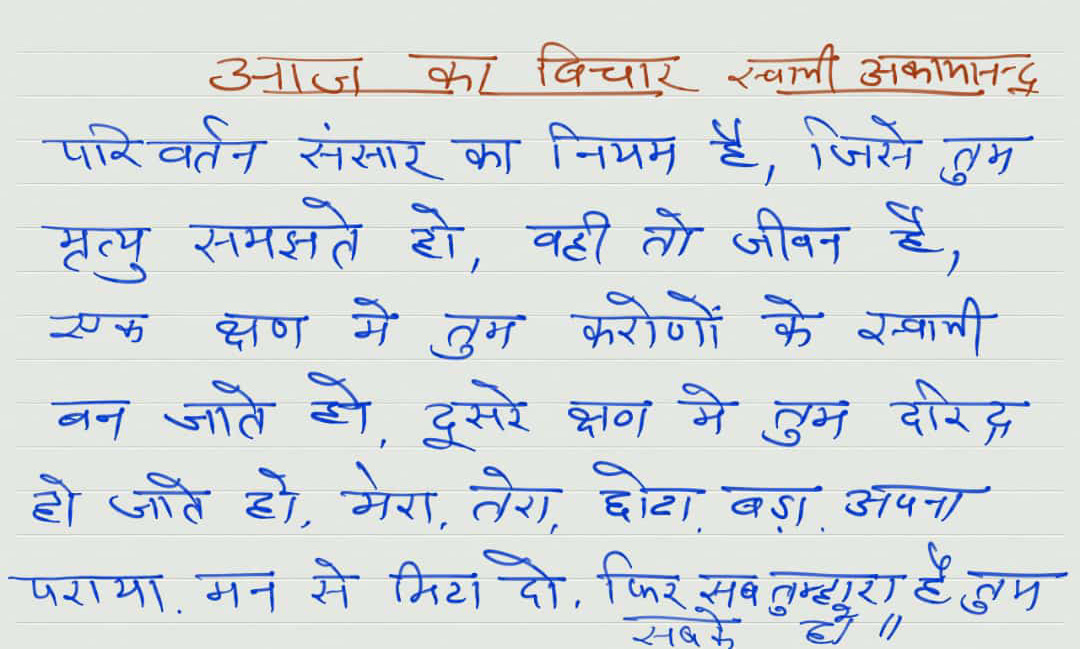 आज का विचार स्वामी अकामानन्द
परिवर्तन संसार का नियम है, जिसे तुम
मृत्यु समझते हो, वही तो जीवन है,
एक क्षण मे तुम करोणों के स्वामी
बन जाते हो, दूसरे क्षण मे तुम दरिद्र
हो जाते हो, मेरा, तेरा, छोटा, बड़ा, अपना
पराया, मन से मिटा दो, फिर सब तुम्हारा है, तुम
सबके हो ॥